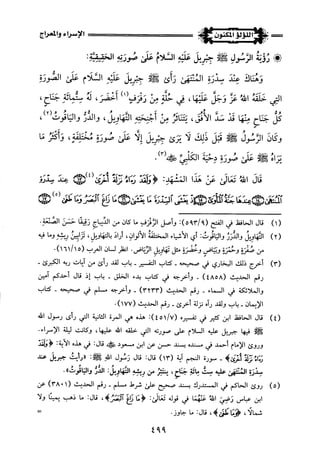 الإسراء والمعراج
اللؤلؤ المكنون
رُؤْيَةُ الرَّسُولِ ﷺ جِبْرِيلَ عَلَيْهِ السَّلَامُ عَلَىٰ صُورَتِهِ الحَقِيقِيَّةِ:
وَهُنَاكَ عِنْدَ سِدْرَةِ المُنْتَهَىٰ رَأَىٰ ﷺ جِبْرِيلَ عَلَيْهِ السَّلَامُ عَلَىٰ الصُّورَةِ
التِي خَلَقَهُ اللهُ عَزَّ وَجَلَّ عَلَيْهَا، فِي حُلَّةٍ مِنْ رَفْرَفٍ(١) أَخْضَرَ، لَهُ سِتُّمِائَةِ جَنَاحٍ،
كُلُّ جَنَاحٍ مِنْهَا قَدْ سَدَّ الأُفُقَ، يَتَنَاثَرُ مِنْ أَجْنِحَتِهِ التَّهَاوِيلُ، وَالدُّرُّ وَاليَاقُوتُ(٢)،
وَكَانَ الرَّسُولُ ﷺ قَبْلَ ذَلِكَ لَا يَرَىٰ جِبْرِيلَ إِلَّا عَلَىٰ صُورَةٍ مُخْتَلِفَةٍ، وَأَكْثَرُ مَا
يَرَاهُ ﷺ عَلَىٰ صُورَةِ دِحْيَةَ الكَلْبِيِّ(٣).
قَالَ اللهُ تَعَالَىٰ عَنْ هَذَا المَشْهَدِ: ﴿وَلَقَدْ رَءَاهُ نَزْلَةً أُخْرَىٰ(٤) عِندَ سِدْرَةِ
ٱلْمُنتَهَىٰ عِندَهَا جَنَّةُ ٱلْمَأْوَىٰٓ إِذْ يَغْشَى ٱلسِّدْرَةَ مَا يَغْشَىٰ مَا زَاغَ ٱلْبَصَرُ وَمَا طَغَىٰ(٥)
(١) قال الحافظ في الفتح (٥٩٣/٩): وأصل الرَّفرفِ ما كان من الدِّيباج رَقيقًا حَسَنَ الصَّنعةِ.
(٢) التَّهَاوِيلُ والدُّرُّ واليَاقُوتُ: أي الأشياء المختلفةُ الألوانِ، أراد بالتهاويلِ، تَزَايِينُ ريشِهِ وما فيه
من صُفرةٍ وحُمرةٍ وبَيَاضٍ وخُضرةٍ مثل تهاويل الرِّياض. انظر لسان العرب (١٦١/١٥).
(٣) أخرج ذلك البخاري في صحيحه - كتاب التفسير - باب لقد رأى من آيات ربه الكبرى -
رقم الحديث (٤٨٥٨) - وأخرجه في كتاب بدء الخلق - باب إذ قال أحدكم آمين
والملائكة في السماء - رقم الحديث (٣٢٣٣) - وأخرجه مسلم في صحيحه - كتاب
الإيمان - باب ولقد رآه نزلة أخرى - رقم الحديث (١٧٧).
(٤) قال الحافظ ابن كثير في تفسيره (٤٥١/٧): هذه هي المرة الثانية التي رأى رسول الله
ﷺ فيها جبريل عليه السلام على صورته التي خلقه الله عليها، وكانت ليلة الإسراء.
وروى الإمام أحمد في مسنده بسند حسن عن ابن مسعود قال: في هذه الآية: ﴿وَلَقَدْ
رَءَاهُ نَزْلَةً أُخْرَىٰ﴾ - سورة النجم آية (١٣) قال: قال رسول الله ﷺ: «رأيتُ جبريلَ عند
سِدْرَةِ المُنْتَهَىٰ عليه سِتُّ مِائَةِ جَنَاحٍ، يَنْتَثِرُ من ريشِهِ التَّهَاوِيلُ: الدُّرُّ واليَاقُوتُ».
(٥) روى الحاكم في المستدرك بسند صحيح على شرط مسلم - رقم الحديث (٣٨٠١) عن
ابن عباس رَضِيَ اللهُ عَنْهُمَا في قوله تَعَالَىٰ: ﴿مَا زَاغَ ٱلْبَصَرُ﴾، قال: ما ذهب يمينًا ولا
شمالًا، ﴿وَمَا طَغَىٰ﴾، قال: ما جاوز. =
٤٩٩